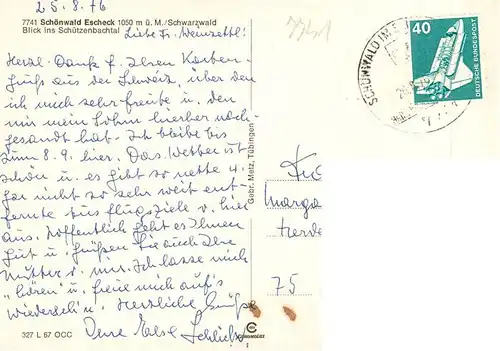 25.8.76
7741 Schönwald Escheck 1050 m ü. M./Schwarzwald
Blick ins Schützenbachtal
Liebe Fr. Weinzettl!
7741
Herzl. Dank f. Ihren Karten-
gruß aus der Schweiz, über den
ich mich sehr freute u. den
mir mein böhm hierher nach-
gesandt hat. Ich bleibe bis
zum 8. 9. hier. Das Wetter ist
schön u. es gibt so nette u.
gar nicht so sehr weit ent-
fernte Ausflugsziele v. hier
aus. Hoffentlich geht es Ihnen
gut u. grüßen Sie auch Ihre
Mutter v. mir. Ich lasse mich
"hören" u. freue mich auf's
Wiederseh'n. Herzliche Grüße
Ihre Else
Gebr. Metz, Tübingen
SCHÖNWALD IM S
40
DEUTSCHE BUNDESPOST
Marga
75
327 L 67 OCC